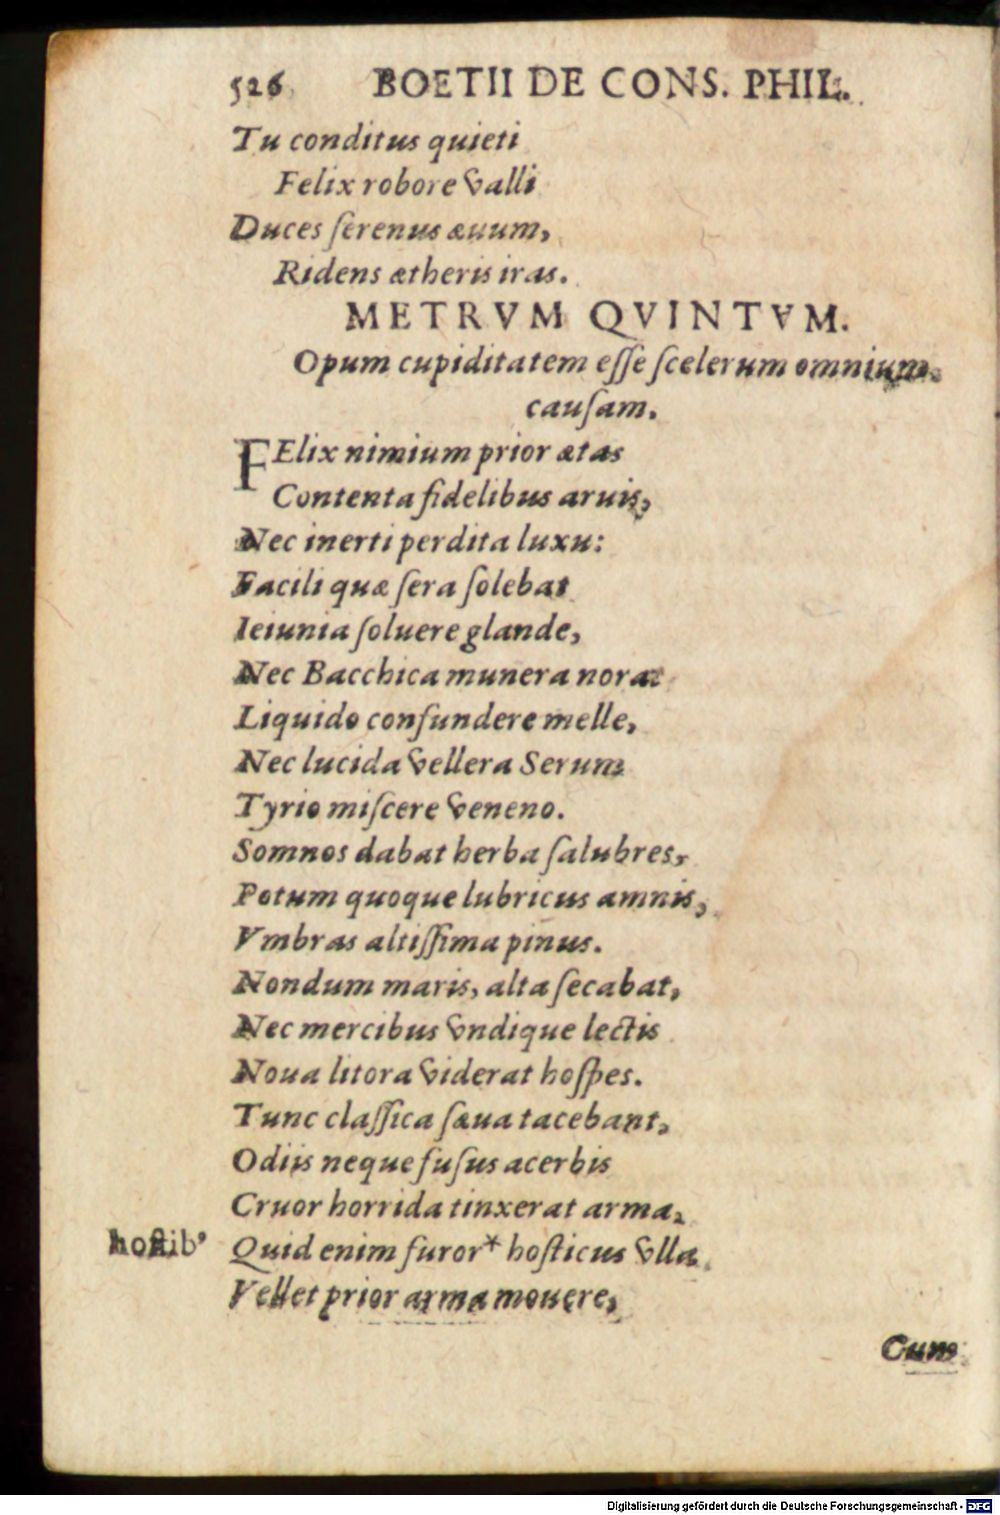 526 BOETII DE CONS. PHIL.
Tu conditus quieti
Felix robore valli
Duces ſerenus æuum,
Ridens ætheris iras.
METRVM QVINTVM.
Opum cupiditatem eſſe ſcelerum omnium
cauſam.
FElix nimium prior ætas
Contenta fidelibus aruis,
Nec inerti perdita luxu:
Facili quæ ſera ſolebat
Ieiunia ſoluere glande,
Nec Bacchica munera norat
Liquido confundere melle,
Nec lucida vellera Serum
Tyrio miſcere veneno.
Somnos dabat herba ſalubres,
Potum quoque lubricus amnis,
Vmbras altiſſima pinus.
Nondum maris, alta ſecabat,
Nec mercibus vndique lectis
Noua litora viderat hoſpes.
Tunc claſſica ſæua tacebant,
Odiis neque fuſus acerbis
Cruor horrida tinxerat arma.
hoſtib' Quid enim furor* hoſticus vlla
Vellet prior arma mouere,
Cum
Digitalisierung gefördert durch die Deutsche Forschungsgemeinschaft - DFG